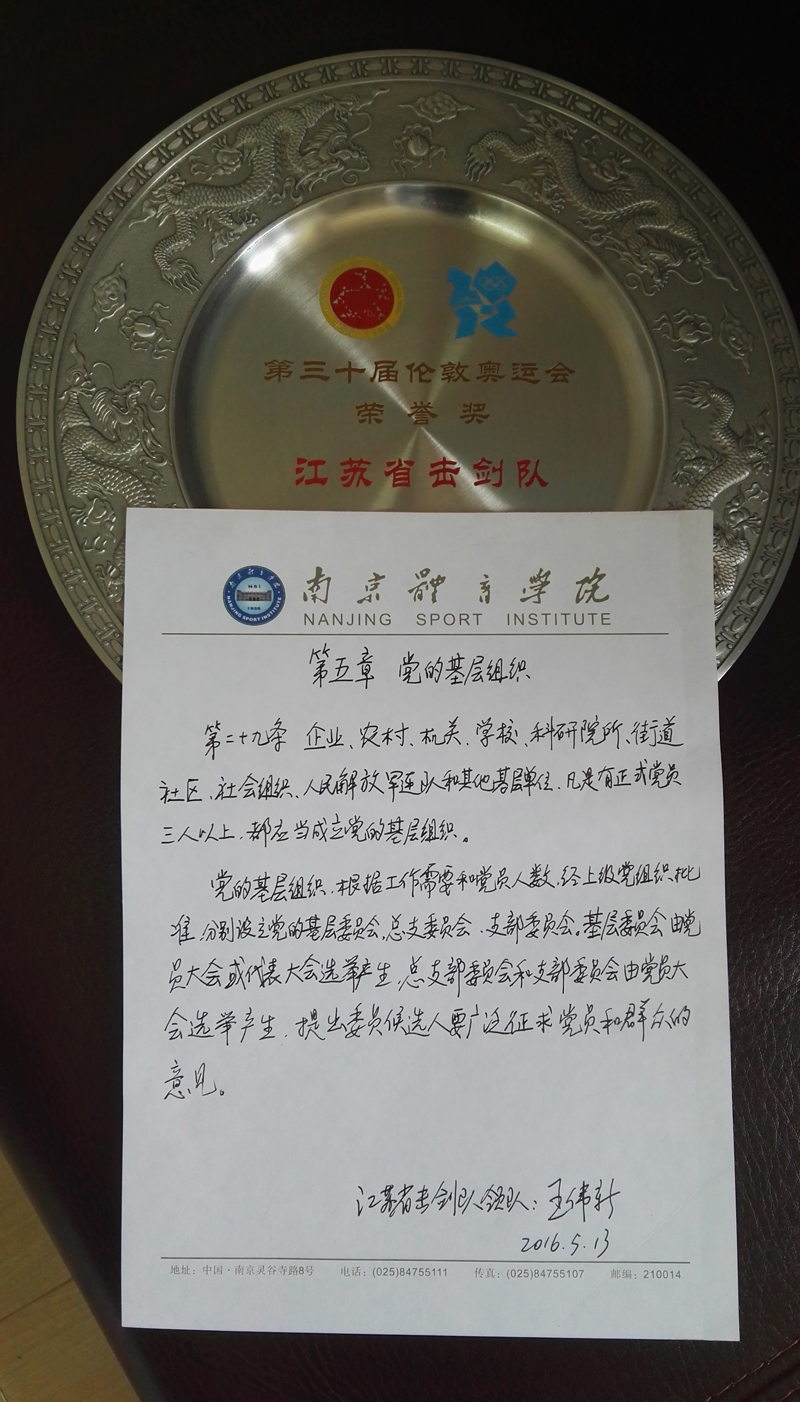 第三十届伦敦奥运会
荣誉奖
江苏省击剑队
NSI
1956
NANJING SPORT INSTITUTE
南京體育學院
NANJING SPORT INSTITUTE
第五章 党的基层组织
第二十九条 企业、农村、机关、学校、科研院所、街道
社区、社会组织、人民解放军连队和其他基层单位,凡是有正式党员
三人以上,都应当成立党的基层组织。
党的基层组织,根据工作需要和党员人数,经上级党组织批
准,分别设立党的基层委员会,总支委员会、支部委员会。基层委员会由党
员大会或代表大会选举产生,总支部委员会和支部委员会由党员大
会选举产生,提出委员候选人要广泛征求党员和群众的
意见。
江苏省击剑队领队:王伟新
2016.5.13
地址:中国·南京灵谷寺路8号 电话:(025)84755111 传真:(025)84755107 邮编:210014